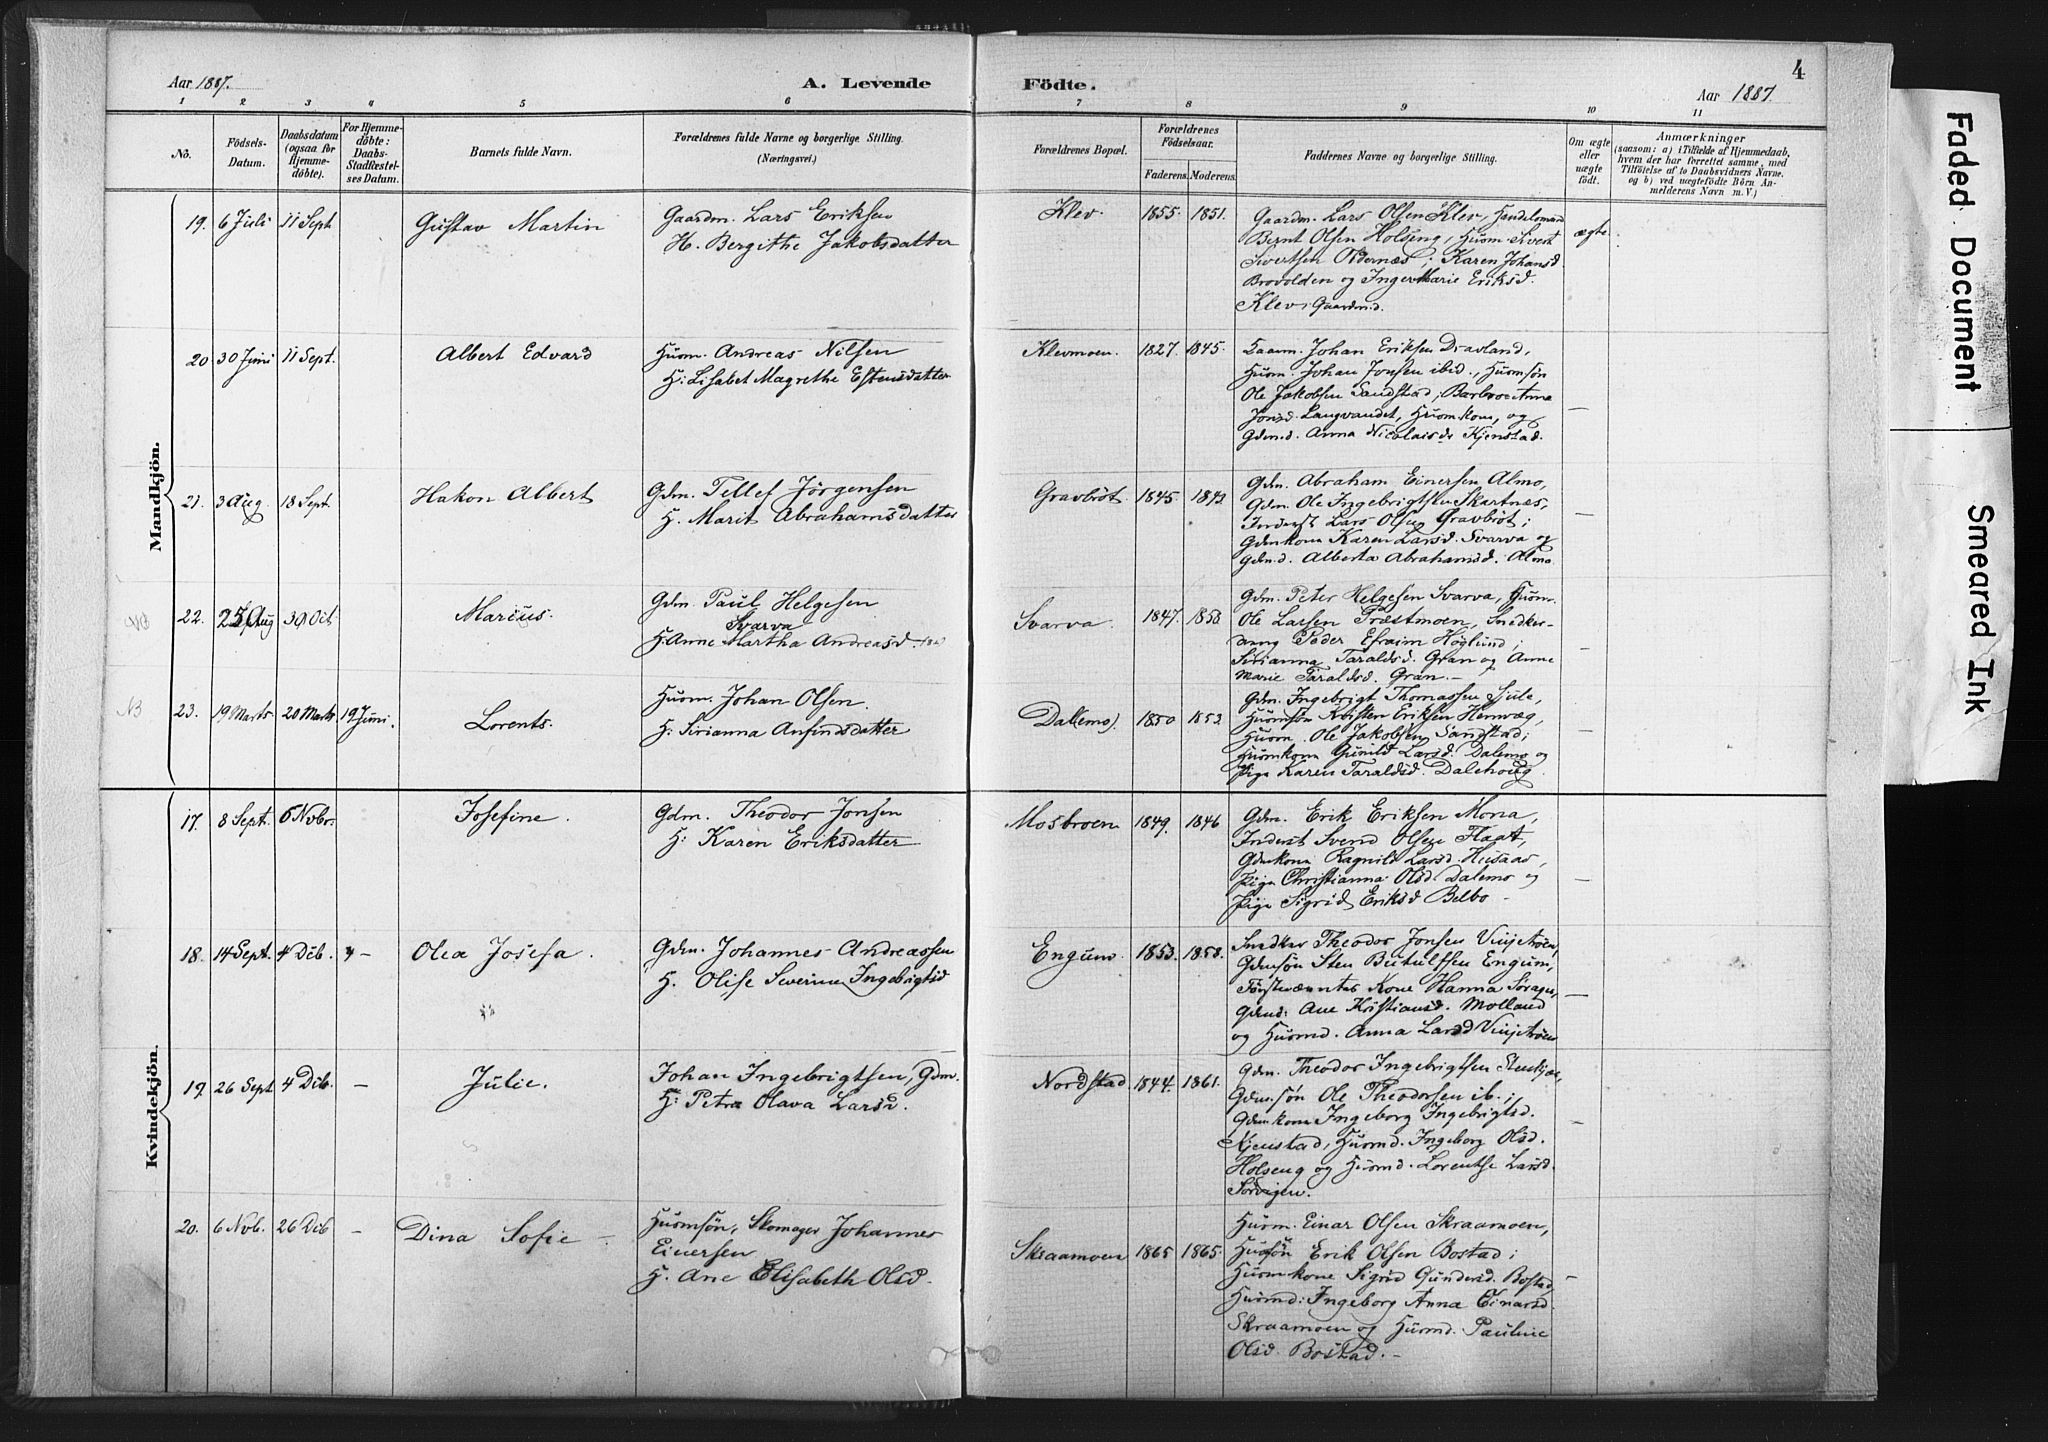 Aar 1887. A. Levende Födte. Aar 1887
4
1 2 3 4 5 6 7 8 9 10 11
Nô.
Födsels-
Datum.
Daabsdatum
(ogsaa for
Hjemme-
döbte).
For Hjemme-
döbte:
Daabs-
Stadfæstel-
ses Datum.
Barnets fulde Navn.
Forældrenes fulde Navne og borgerlige Stilling.
(Næringsvei.)
Forældrenes Bopæl.
Forældrenes
Födselsaar.
Faderens. Moderens.
Faddernes Navne og borgerlige Stilling.
Om ægte
eller
uægte
födt.
Anmærkninger
(saasom: a) i Tilfælde af Hjemmedaab,
hvem der har forrettet samme, med
Tilföielse af to Daabsvidners Navne.
og b) ved uægtefödte Börn An-
melderens Navn m. V.)
Mandkjön.
19. 6 Juli 11 Sept Gustav Martin
Gaardm. Lars Eriksen
H. Bergithe Jakobsdatter
Klev. 1855. 1851.
Gaardm. Lars Olsen Klev, Handelsmand
Bernt Olsen Holseng, Husm. Sivert
Sivertsen Oldernæs; Karen Johansd.
Brovolden og Inger Marie Eriksd.
Klev, Gaardmd.
ægte
20 30 Juni 11 Sept. Albert Edvard
Husm. Andreas Nilsen
H: Lisabet Magrethe Estensdatter
Klevmoen. 1827. 1845.
Gaarm. Johan Eriksen Dravland,
Husm. Johan Jonsen ibid., Husmsøn
Ole Jakobsen Sandstad; Barbroe Anna
Jonsd. Langvandet, Husmkone, og
Gdmd. Anna Nicolaisd. Kjenstad.
—
21. 3 Aug. 18 Sept. Hakon Albert
Gdm. Tellef Jörgensen
H. Marit Abrahamsdatter
Gravbröt. 1845. 1842
Gdm. Abraham Einersen Almo,
Gdm. Ole Ingebrigtsen Skartnæs,
Inderst Lars Olsen Gravbröt;
Gdmkone Karen Larsd. Svarva og
Gdmd. Alberta Abrahamsd. Almo
—
NB 22. 25 Aug 30 Oct. Marius.
Gdm. Paul Helgesen
Svarva
H. Anne Martha Andreasd.
Svarva. 1847. 1858
Gdm. Peter Helgesen Svarva, Husm.
Ole Larsen Præstmoen, Snedker-
Peder Efraim Höglund;
Sirianna Taraldsd. Gran og Anne
Marie Taraldsd. Gran.—
—
NB 23. 19 Marts 20 Marts 19 Juni. Lorents.
Husm. Johan Olsen.
H: Sirianna Anfindsdatter
Dalemo. 1850 1853.
Gdm. Ingebrigt Thomassen Sjule,
Husmsön Kristen Eriksen Hemvæg,
Husm. Ole Jakobsen Sandstad;
Husmkone Gunild Larsd. Dalemo og
Pige Karen Taraldsd. Dalehoug.
—
Kvindekjön.
17. 8 Sept. 6 Novbr. Josefine.
Gdm. Theodor Jonsen
H: Karen Eriksdatter
Mosbroen 1849. 1846
Gdm. Erik Eriksen Mona,
Inderst Svend Olsen Flaat,
Gdmkone Ragnild Larsd. Husaas,
Pige Christianna Olsd. Dalemo og
Pige Sigrid Eriksd Belbo -
—
18. 14 Sept. 4 Dcb. — Olea Josefa.
Gdm. Johannes Andreassen
H. Olise Severine Ingebrigtsd
Engum. 1853. 1858.
Snedker Theodor Jonsen
Gdmsön Sten Bertulfsen Engum,
Kone Hanna
Gdmd: Ane Kristiansd. Molland
og Husmd. Anna Larsd
—
19. 26 Sept 4 Dcb. — Julie.
Johan Ingebrigtsen, Gdm.
H: Petra Olava Larsd.
Nordstad 1844. 1861.
Gdm. Theodor Ingebrigtsen
Gdmsön Ole Theodorsen ib.;
Gdmkone Ingeborg Ingebrigtsd.
Kjenstad, Husmd. Ingeborg Olsd.
Holseng og Husmd. Lorentse Larsd.
Sörvigen.
—
20. 6 Nov. 26 Dcb — Dina Sofie —
Husmsön, Skomager Johannes
Einersen
H. Ane Elisabeth Olsd.
Skraamoen 1865 1865.
Husm. Einar Olsen Skraamoen,
Husmsön Erik Olsen Bostad;
Husmkone Sigrid Gundersd. Bostad,
Husmd: Ingeborg Anna Einarsd.
Skraamoen og Husmd. Pauline
Olsd. Bostad. —
—
Faded Document
Smeared Ink